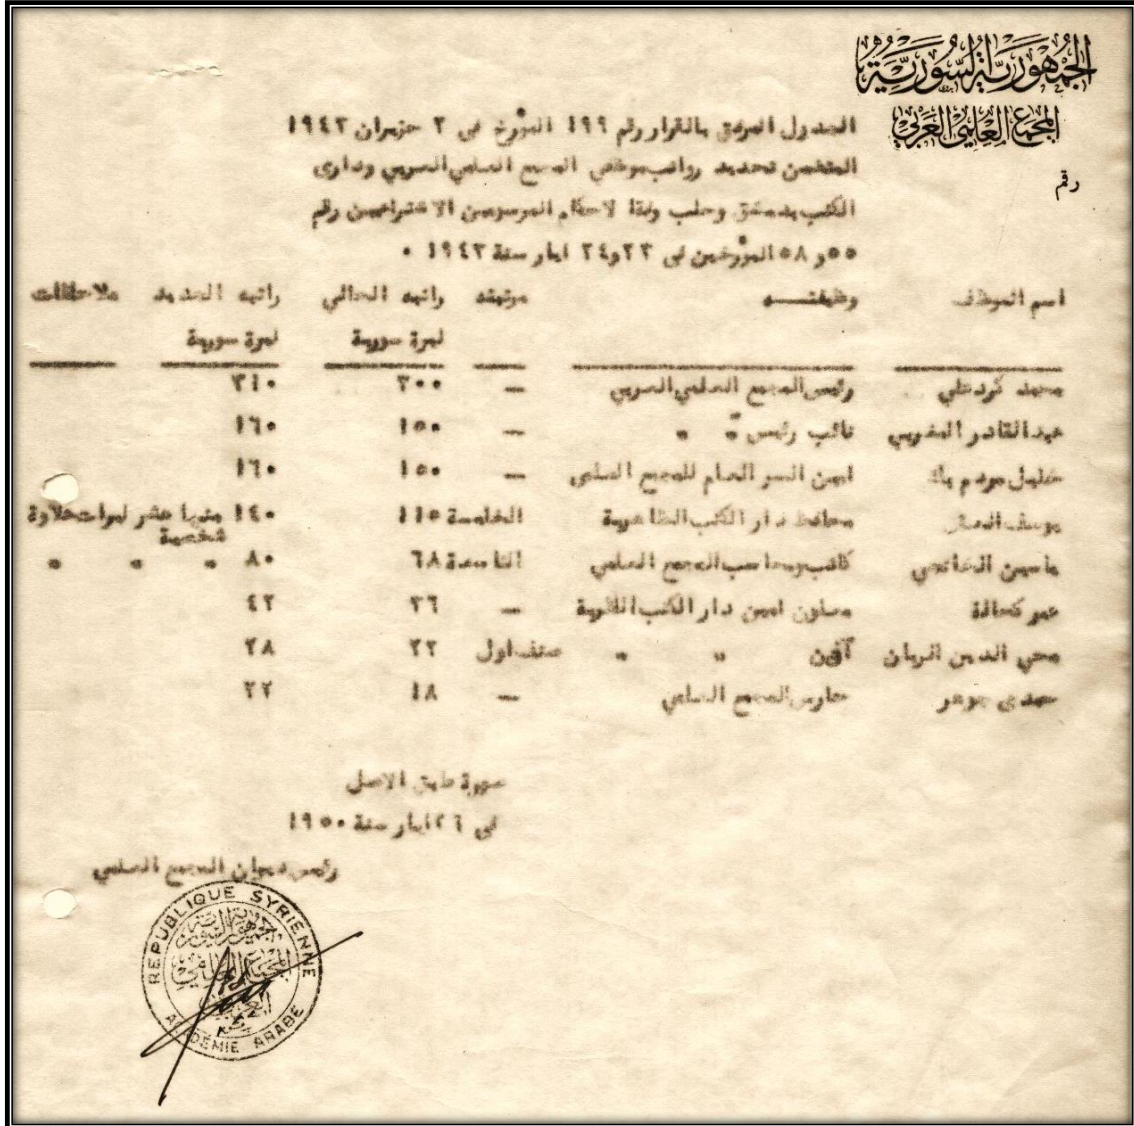 الجمهورية السورية
المجمع العلمي العربي
رقم
الجدول المرفق بالقرار رقم ١٩٩ المؤرخ في ٢ حزيران ١٩٤٣
المتضمن تحديد رواتب موظفي المجمع العلمي العربي وداري
الكتب بدمشق وحلب وفقا لاحكام المرسومين الاشتراعيين رقم
٥٥ و ٥٨ المؤرخين في ٢٣ و ٢٤ ايار سنة ١٩٤٣ ٠
اسم الموظف وظيفتـــه مرتبته راتبه الحالي راتبه الجديد ملاحظات
ليرة سورية ليرة سورية
محمد كرد علي رئيس المجمع العلمي العربي — ٣٠٠ ٣١٠
عبد القادر المغربي نائب رئيس " " — ١٥٠ ١٦٠
خليل مردم بك امين السر العام للمجمع العلمي — ١٥٠ ١٦٠
يوسف العش محافظ دار الكتب الظاهرية الخامسة ١١٥ ١٤٠ منها عشر ليرات علاوة
شخصية
ياسين الخانجي كاتب ومحاسب المجمع العلمي التاسعة ٦٨ ٨٠ " " "
عمر كحالة معاون امين دار الكتب — ٣٦ ٤٢
محي الدين آذن " " صنف اول ٢٢ ٢٨
حمدي جوهر حارس المجمع العلمي — ١٨ ٢٢
صورة طبق الاصل
في ٢٦ ايار سنة ١٩٥٠
رئيس ديوان المجمع العلمي
REPUBLIQUE SYRIENNE
جمهورية السورية
المجمع العلمي
العربي
ACADÉMIE ARABE